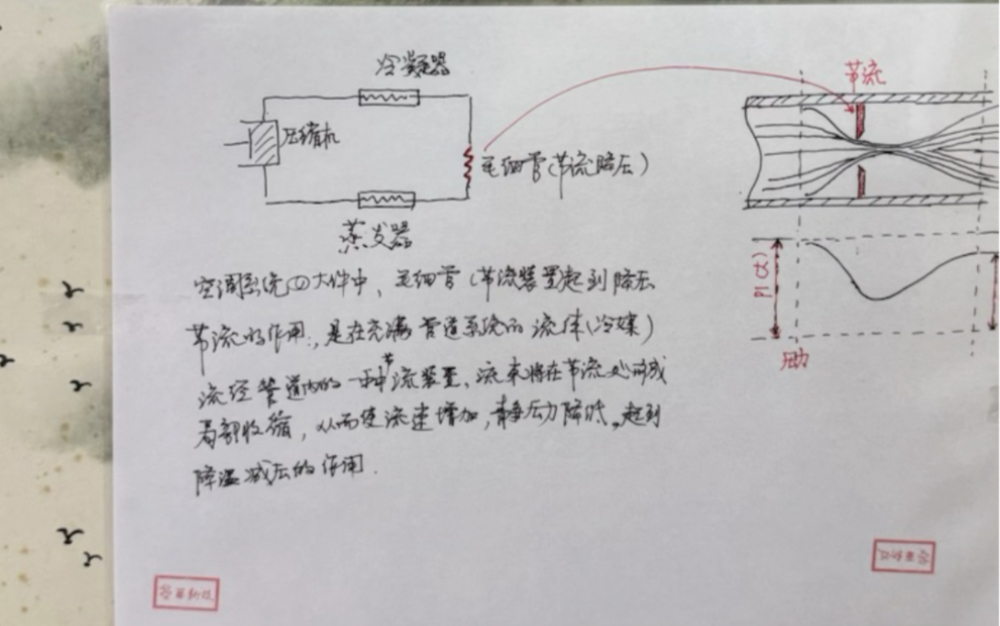 冷凝器
节流
压缩机
毛细管(节流降压)
蒸发器
空调系统四大件中、毛细管(节流装置起到降压
节流的作用:,是在充满管道系统的流体(冷媒)
流经管道内的一种节流装置、流束将在节流处形成
局部收缩,从而使流速增加,静压力降低。起到
降温减压的作用.
P1
压力